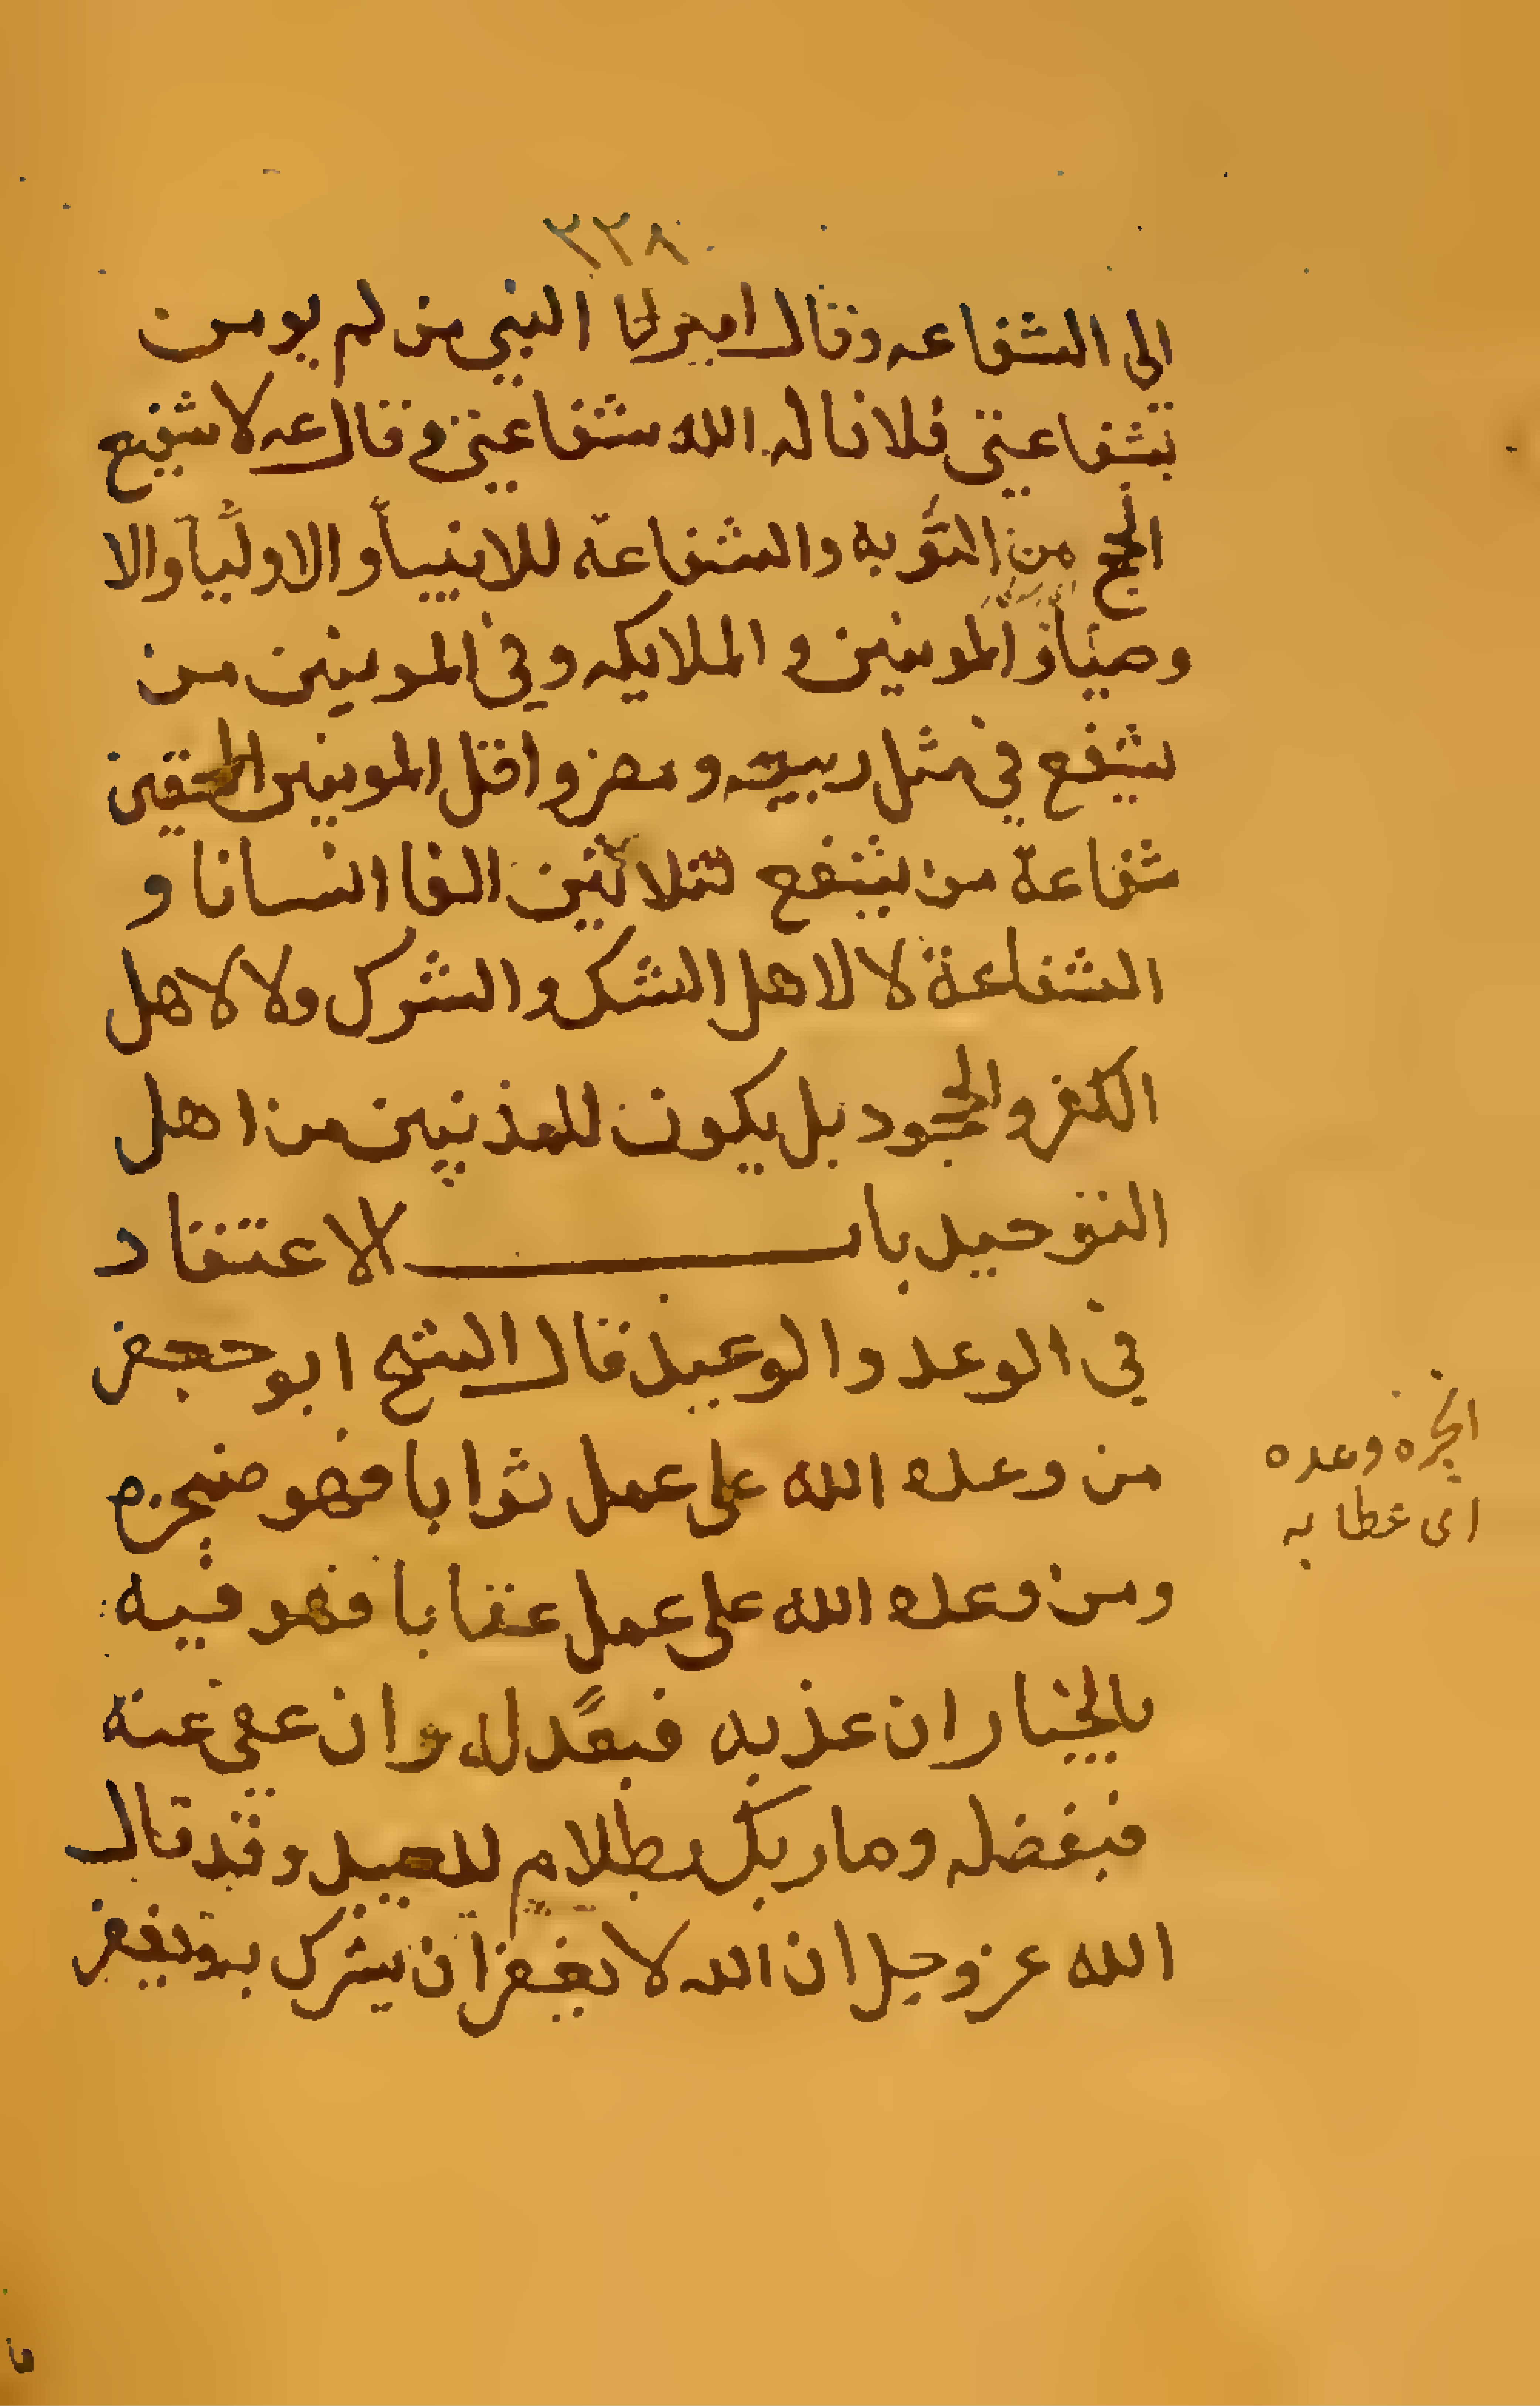 ٣٣٨
الى الشفاعه وقال النبي من لم يومن
بشفاعتى فلا ناله الله شفاعتى وقال عه لا شفيع
انجح من التوبه والشفاعة للانبيأ والاوليآ والا
وصيأ و المومنين و الملايكه وفى المومنين من
يشفع فى مثل ربيعه ومضر واقل المومنين
شفاعة من يشفع لثلاثين الفا انسانا و
الشفاعة لا لاهل الشك و الشرك ولا لاهل
الكفر و الجحود بل يكون للمذنبين من اهل
التوحيد باب الاعتقاد
فى الوعد والوعيد قال الشيخ ابو جعفر
من وعده الله على عمل ثوابا فهو منجزه
ومن وعده الله على عمل عقابا فهو فيه
بالخيار ان عذبه فبعدله وان عفى عنه
فبفضله وما ربك بظلام للعبيد وقد قال
الله عز وجل ان الله لا يغفر ان يشرك به ويغفر
انجزه وعده
اى عطا به